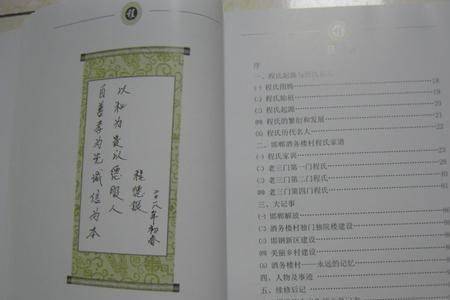 百善孝为先 诚信为本
以和为贵以德服人
二〇一八年初春
序
㈠ 程氏图腾 18
㈡ 程氏始祖
㈢ 程氏起源 20
㈣ 程氏的繁衍和发展 21
㈤ 程氏历代名人 22
二、邯郸酒务楼村程氏家谱
㈠ 程氏家训 23
㈡ 老三门第一门程氏 29
㈢ 老三门第二门程氏 41
㈣ 老三门第四门程氏 61
三、大记事
㈠ 邯郸解放
㈡ 酒务楼村独门独院楼建设
㈢ 邯钢新区建设
㈣ 美丽乡村建设
㈤ 酒务楼村——永远的记忆
四、人物及事迹
五、续修后记